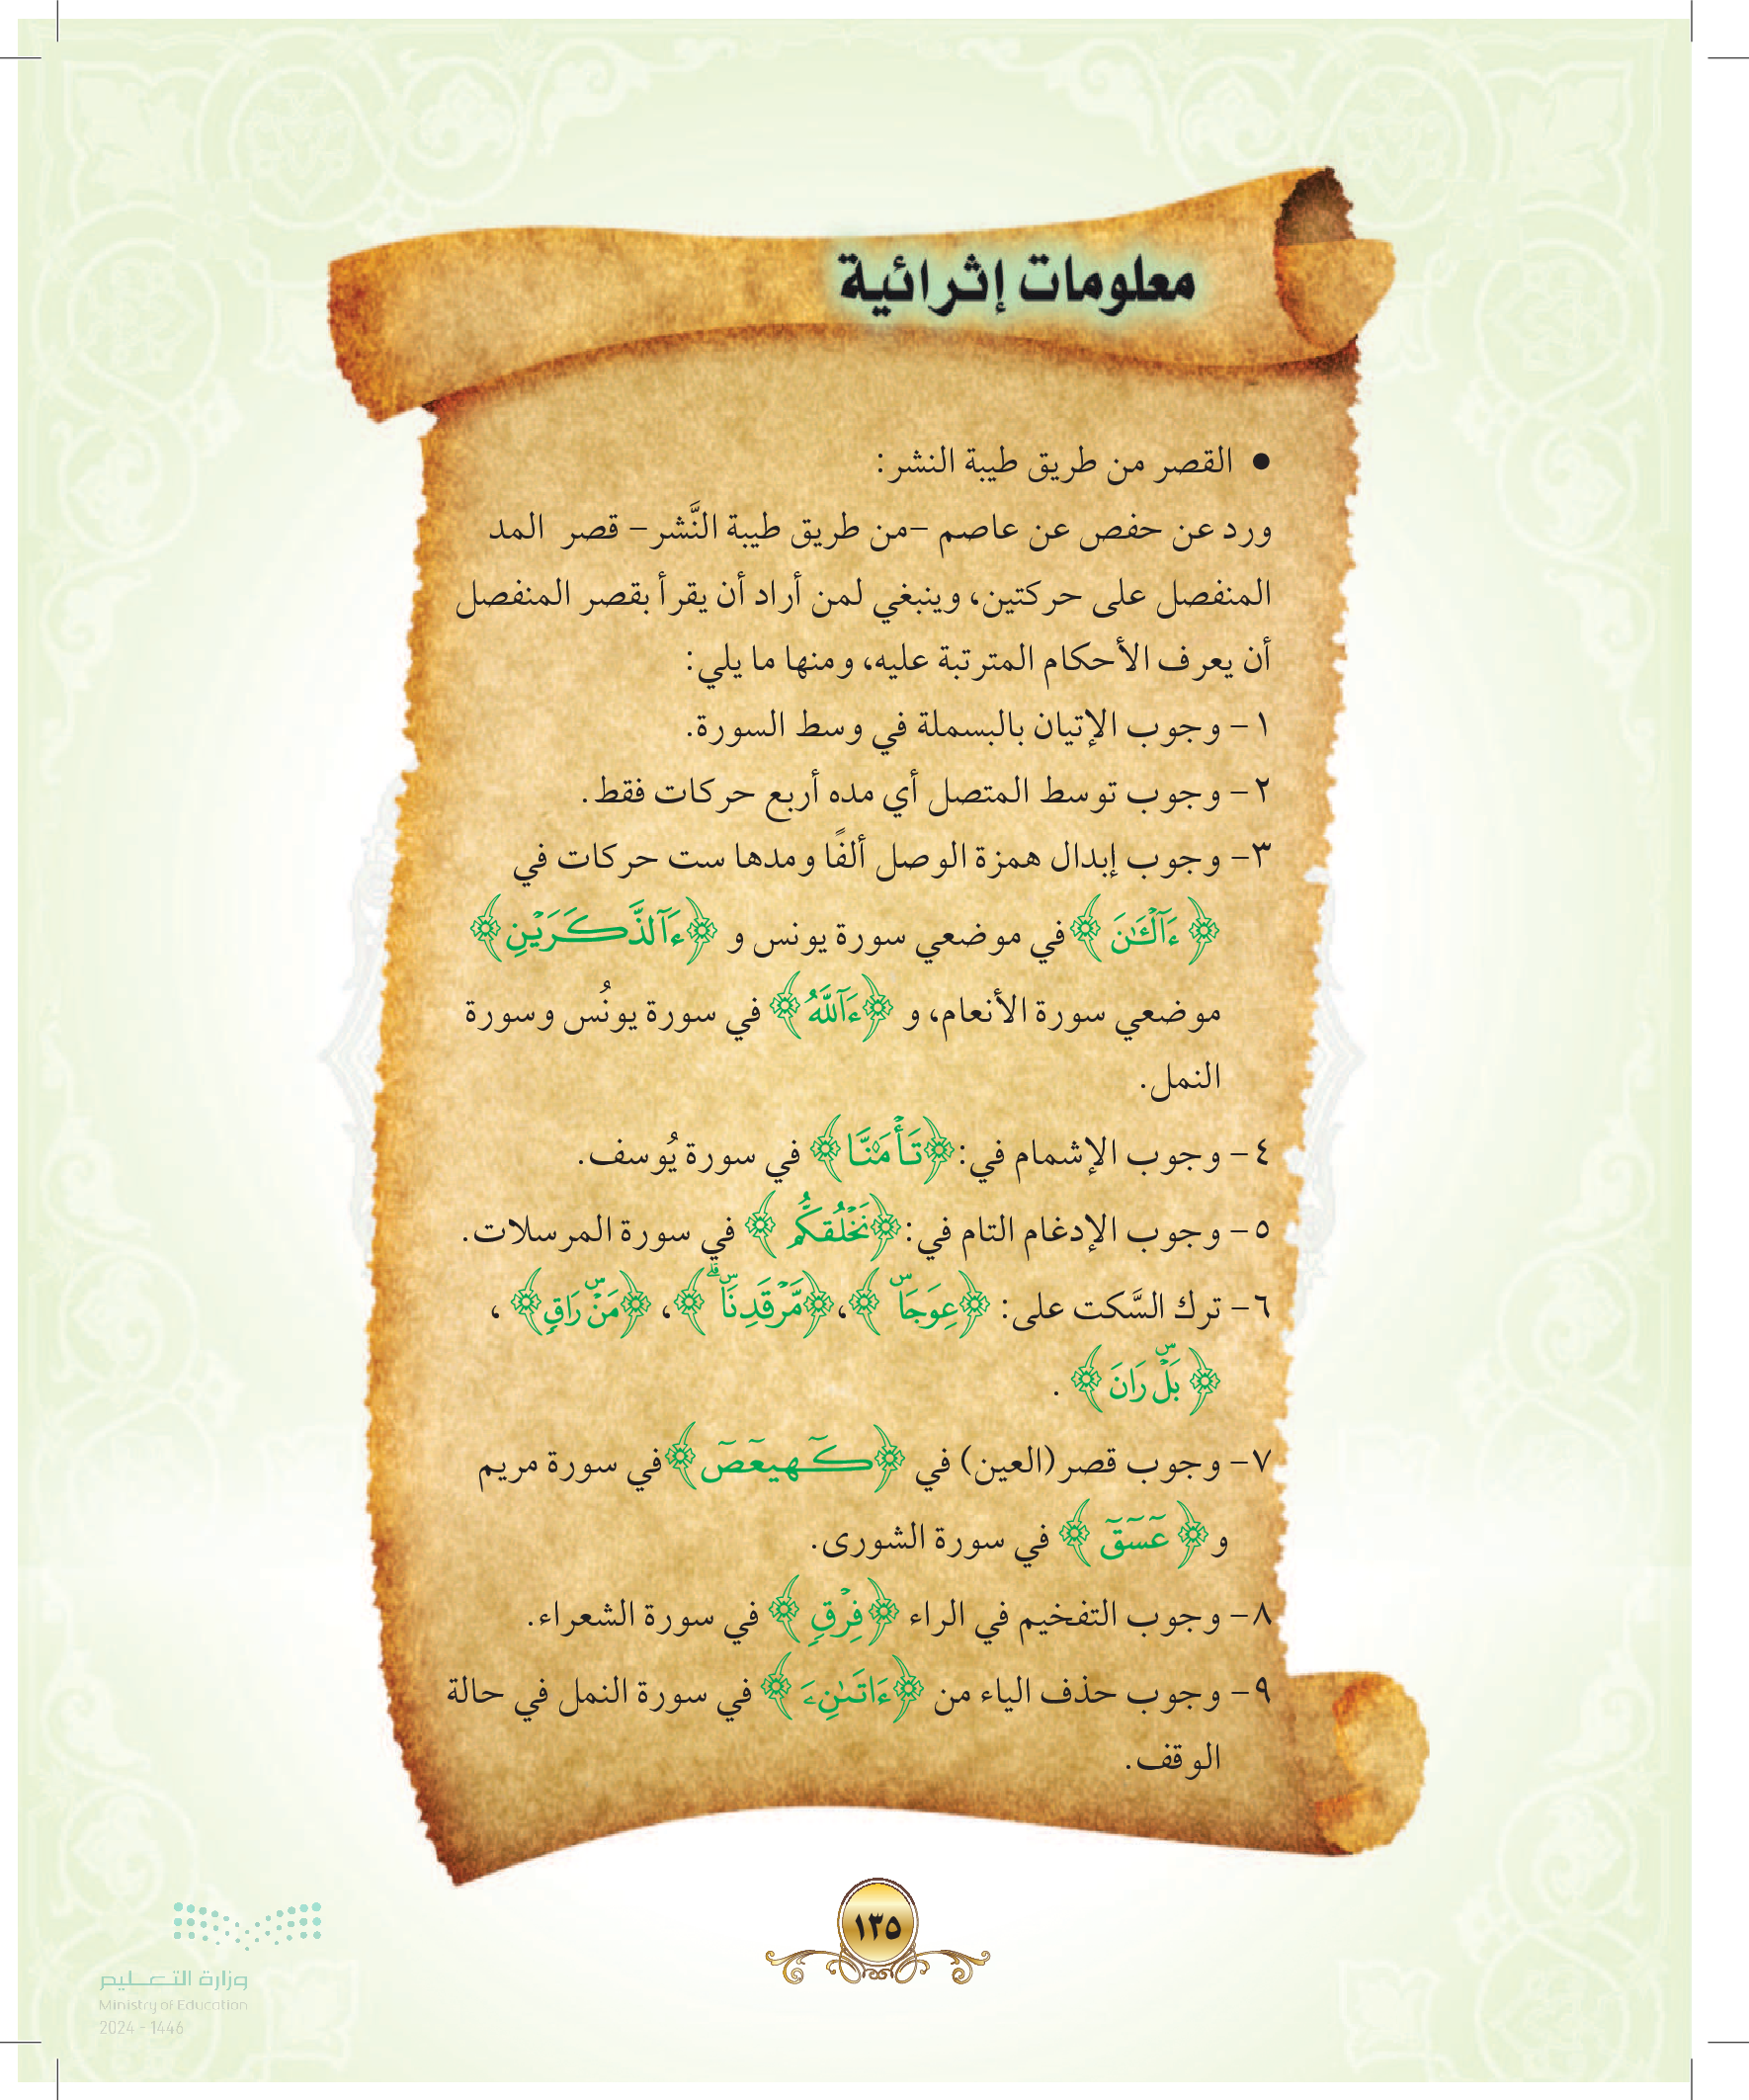 معلومات إثرائية
● القصر من طريق طيبة النشر:
ورد عن حفص عن عاصم -من طريق طيبة النَّشر- قصر المد
المنفصل على حركتين، وينبغي لمن أراد أن يقرأ بقصر المنفصل
أن يعرف الأحكام المترتبة عليه، ومنها ما يلي:
١- وجوب الإتيان بالبسملة في وسط السورة.
٢- وجوب توسط المتصل أي مده أربع حركات فقط.
٣- وجوب إبدال همزة الوصل ألفًا ومدها ست حركات في
﴿ءَآلْـَٰٔنَ﴾ في موضعي سورة يونس و ﴿ءَآلذَّكَرَيْنِ﴾
موضعي سورة الأنعام، و ﴿ءَآللَّهُ﴾ في سورة يونُس وسورة
النمل.
٤- وجوب الإشمام في: ﴿تَأْمَ۫نَّا﴾ في سورة يُوسف.
٥- وجوب الإدغام التام في: ﴿نَخْلُقكُّم﴾ في سورة المرسلات.
٦- ترك السَّكت على: ﴿عِوَجَاۜ﴾، ﴿مَّرْقَدِنَاۜۗ﴾، ﴿مَنْۜ رَاقٍ﴾،
﴿بَلْۜ رَانَ﴾.
٧- وجوب قصر (العين) في ﴿كٓهيعٓصٓ﴾ في سورة مريم
و ﴿عٓسٓقٓ﴾ في سورة الشورى.
٨- وجوب التفخيم في الراء ﴿فِرْقٍ﴾ في سورة الشعراء.
٩- وجوب حذف الياء من ﴿ءَاتَىٰنِۦَ﴾ في سورة النمل في حالة
الوقف.
١٣٥
وزارة التعليم
Ministry of Education
2024 - 1446